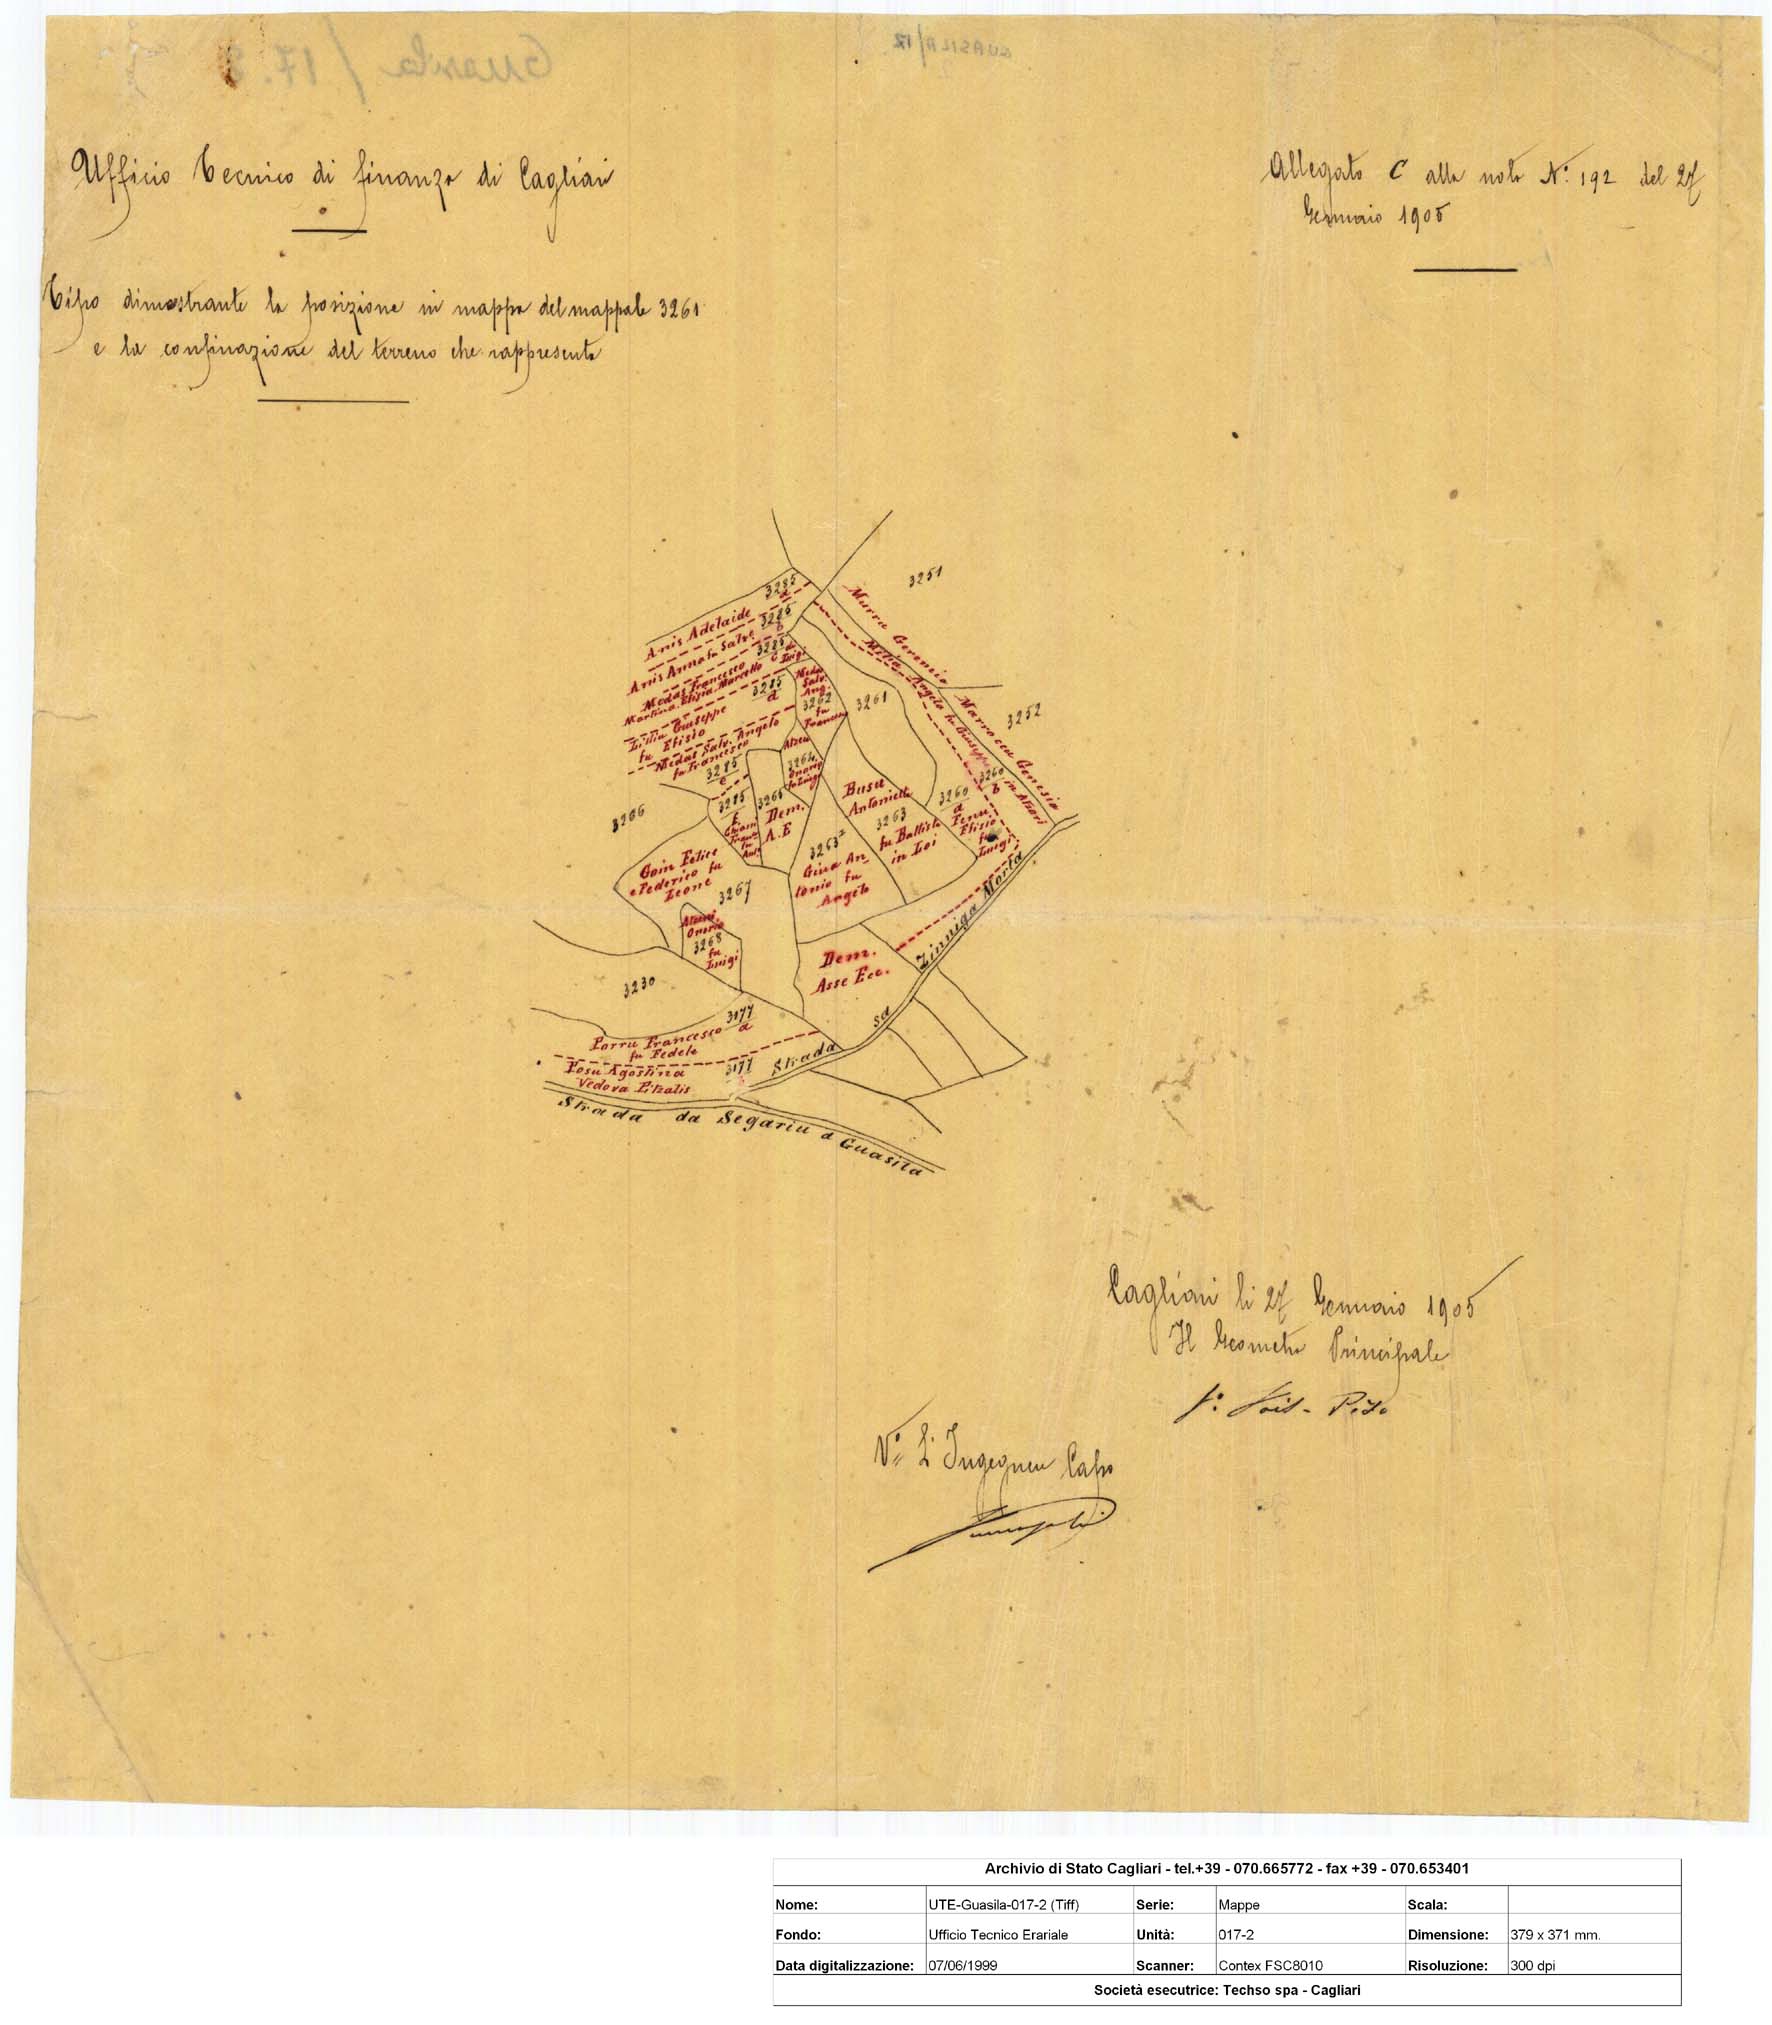 Ufficio Tecnico di finanza di Cagliari
Allegato C alla nota N.º 192 del 27
Gennaio 1905
Tipo dimostrante la posizione in mappa del mappale 3261
e la confinazione del terreno che rappresenta
3251
3285
a
Anis Adelaide
3285
b
Anis Anna fu Salv.e
3285
c
Medas Francesco di Luigi
Martina Efisia Marcello
3285
d
Lillia Giuseppe
fu Efisio
Medas Salv. Angelo
fu Francesco
3285
e
3285
f.
Medas
Salv.
Ang.
3262
fu
Francesco
3261
Murru Genesio
Milia Angelo fu Giuseppe
Marrocciu Genesio
in Atzori
3252
3260
b
3260
a
Fenu
Efisio
fu
Luigi
Atzeni
3264
Onorio
fu Luigi
3265
Dem.
A.E
3266
Busu
Antonietta
3263
fu Battista
in Loi
3263²
Gina An
tonio fu
Angelo
Goin Felice
e Federico fu
Leone
3267
Atzeni
Onorio
3268
fu
Luigi
Dem.
Asse Ecc.
3230
3177
a
Porru Francesco
fu Fedele
3177
b
Posu Agostina
Vedova Pitzalis
Strada sa Zinniga Morta
Strada da Segariu a Guasila
Cagliari li 27 Gennaio 1905
Il Geometra Principale
Vº L'Ingegnere Capo
Archivio di Stato Cagliari - tel.+39 - 070.665772 - fax +39 - 070.653401
Nome: UTE-Guasila-017-2 (Tiff) Serie: Mappe Scala:
Fondo: Ufficio Tecnico Erariale Unità: 017-2 Dimensione: 379 x 371 mm.
Data digitalizzazione: 07/06/1999 Scanner: Contex FSC8010 Risoluzione: 300 dpi
Società esecutrice: Techso spa - Cagliari